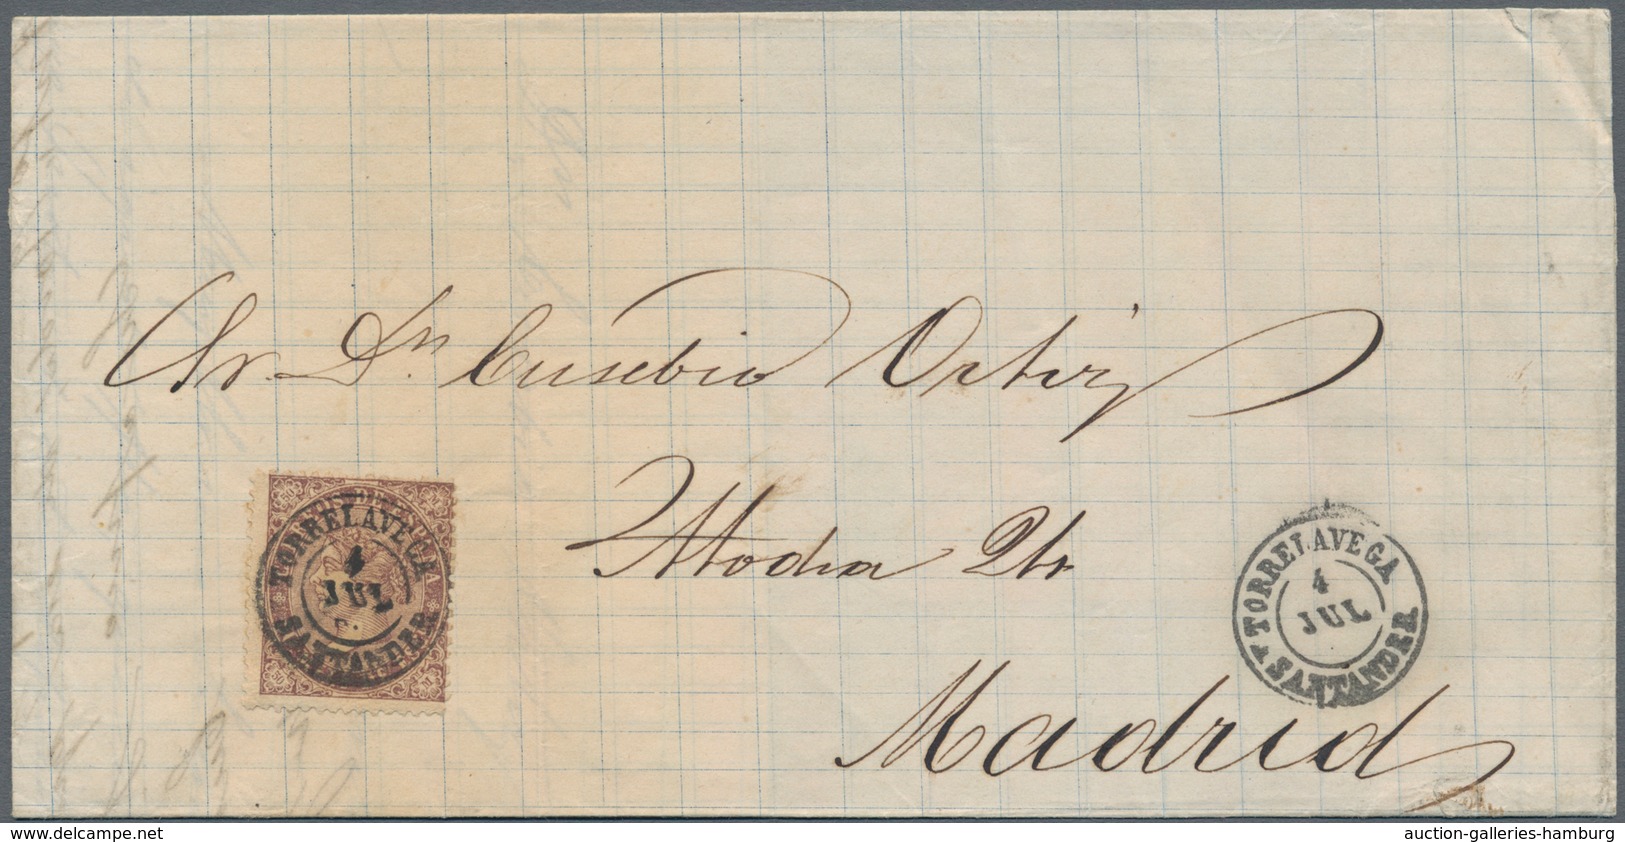 Sr. Dn Eusebio Ortiz
Madrid
TORRELAVEGA
4
JUL
SANTANDER
TORRELAVEGA
4
JUL
SANTANDER
50
50
www.delcampe.net
auction-galleries-hamburg